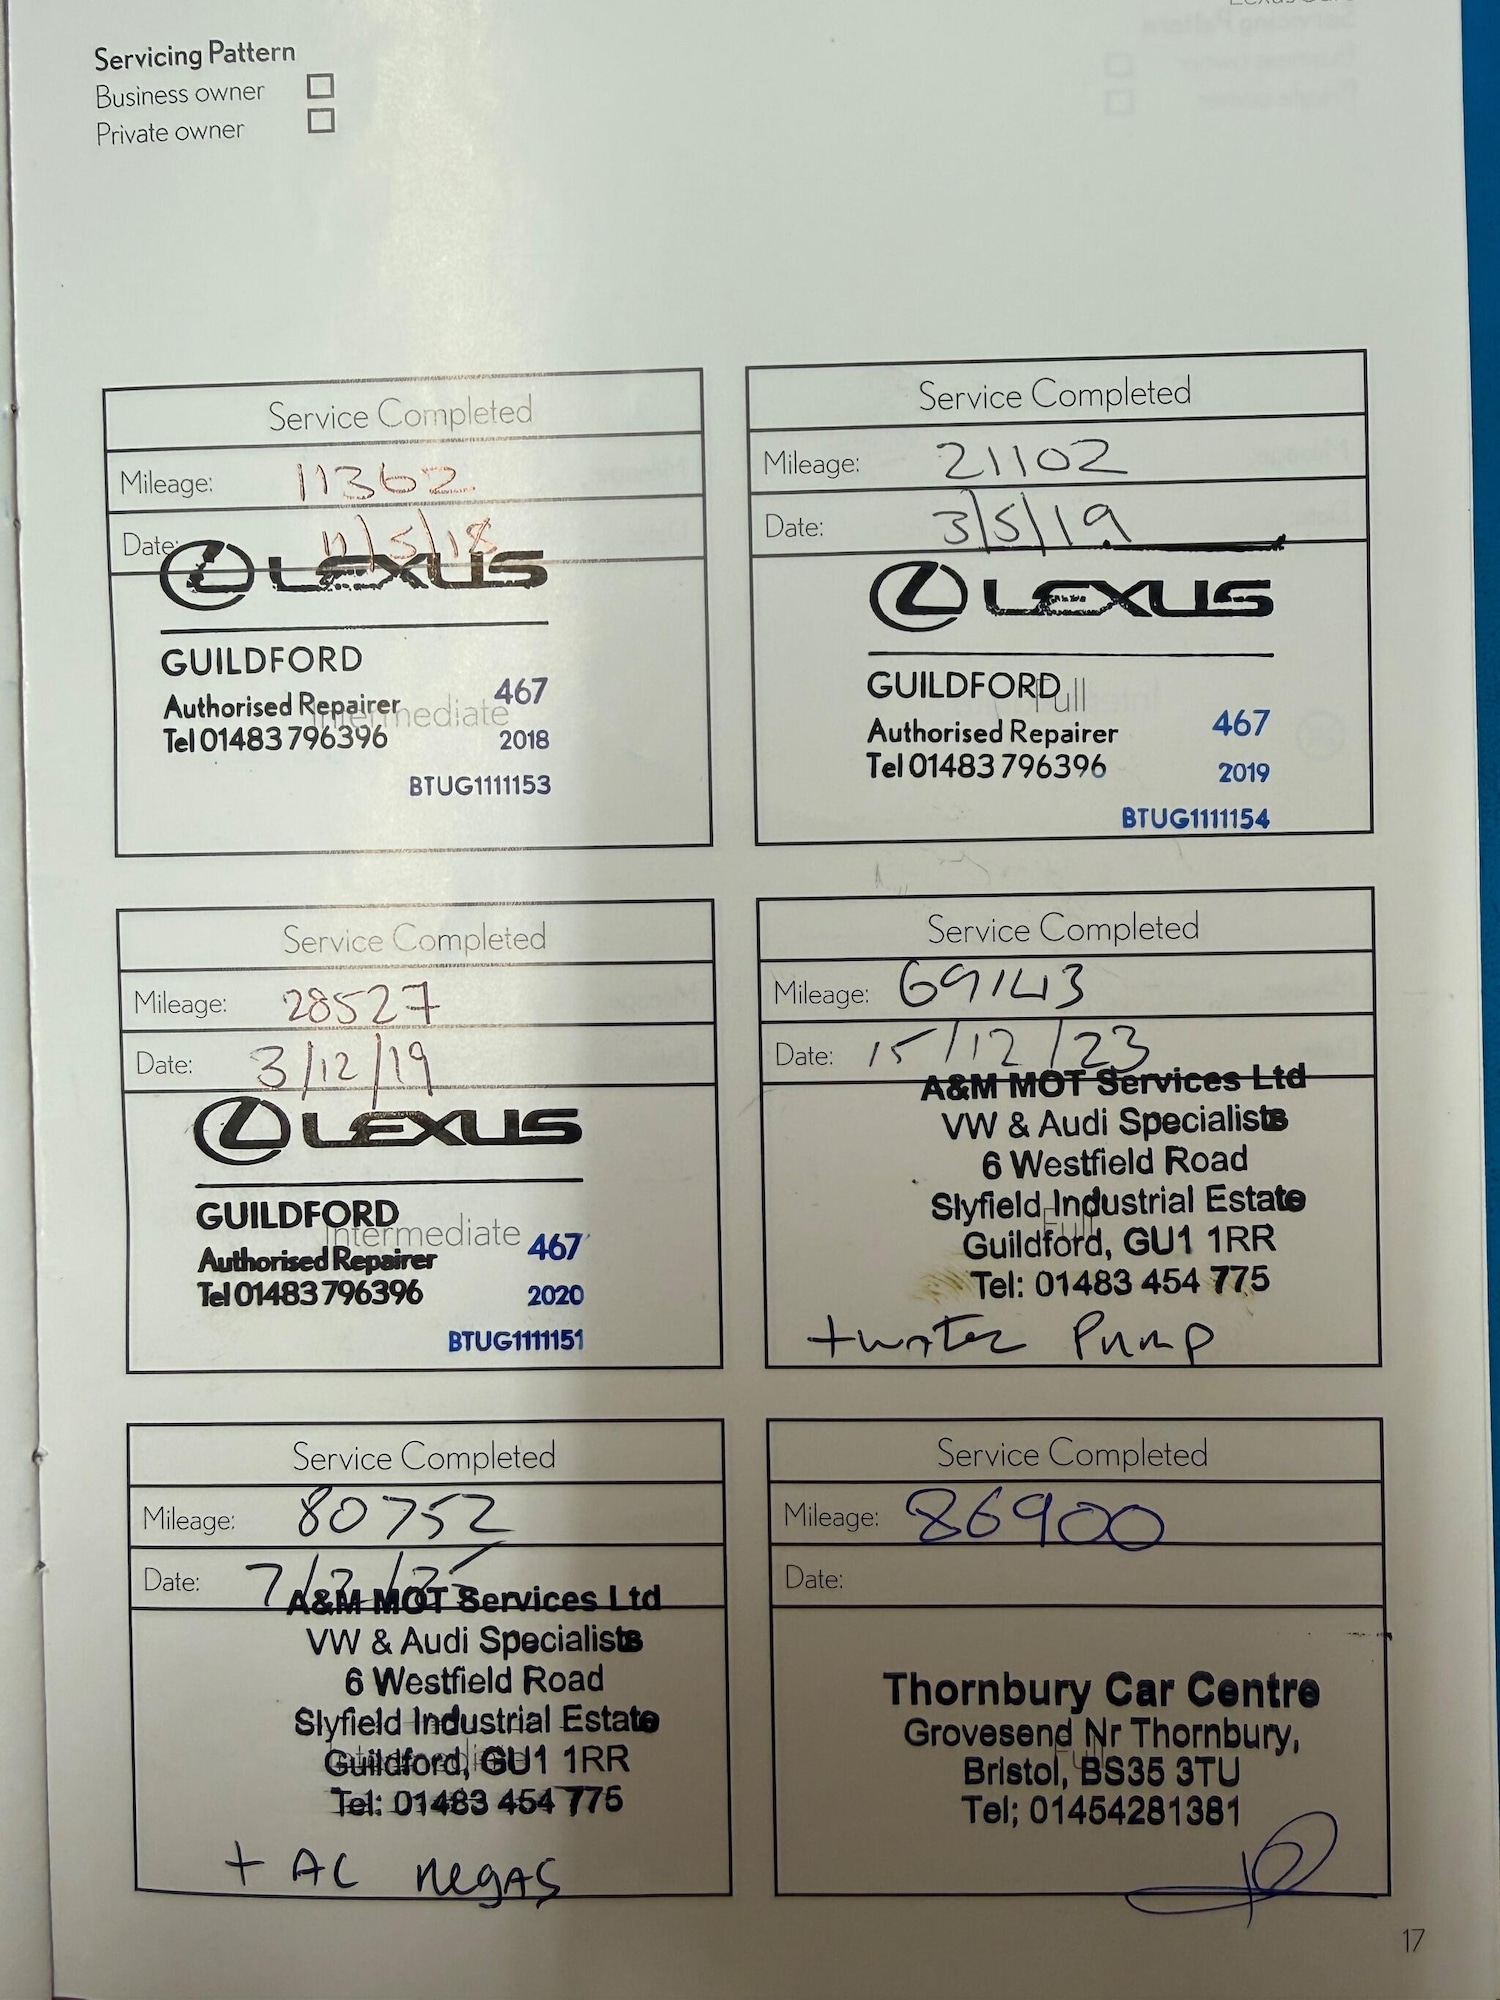 Servicing Pattern
Business owner
Private owner
Service Completed
Mileage: 11362
Date: 11/5/18
LEXUS
GUILDFORD
Authorised Repairer 467
Intermediate
Tel 01483 796396 2018
BTUG1111153
Service Completed
Mileage: 21102
Date: 3/5/19
LEXUS
GUILDFORD
Full
Authorised Repairer 467
Tel 01483 796396 2019
BTUG1111154
Service Completed
Mileage: 28527
Date: 3/12/19
LEXUS
GUILDFORD
Intermediate 467
Authorised Repairer
Tel 01483 796396 2020
BTUG1111151
Service Completed
Mileage: 69143
Date: 15/12/23
A&M MOT Services Ltd
VW & Audi Specialists
6 Westfield Road
Slyfield Industrial Estate
Full
Guildford, GU1 1RR
Tel: 01483 454 775
+ water Pump
Service Completed
Mileage: 80752
Date: 7/
A&M MOT Services Ltd
VW & Audi Specialists
6 Westfield Road
Slyfield Industrial Estate
Guildford, GU1 1RR
Intermediate
Tel: 01483 454 775
+ AC regAS
Service Completed
Mileage: 86900
Date:
Thornbury Car Centre
Grovesend Nr Thornbury,
Full
Bristol, BS35 3TU
Tel; 01454281381
17